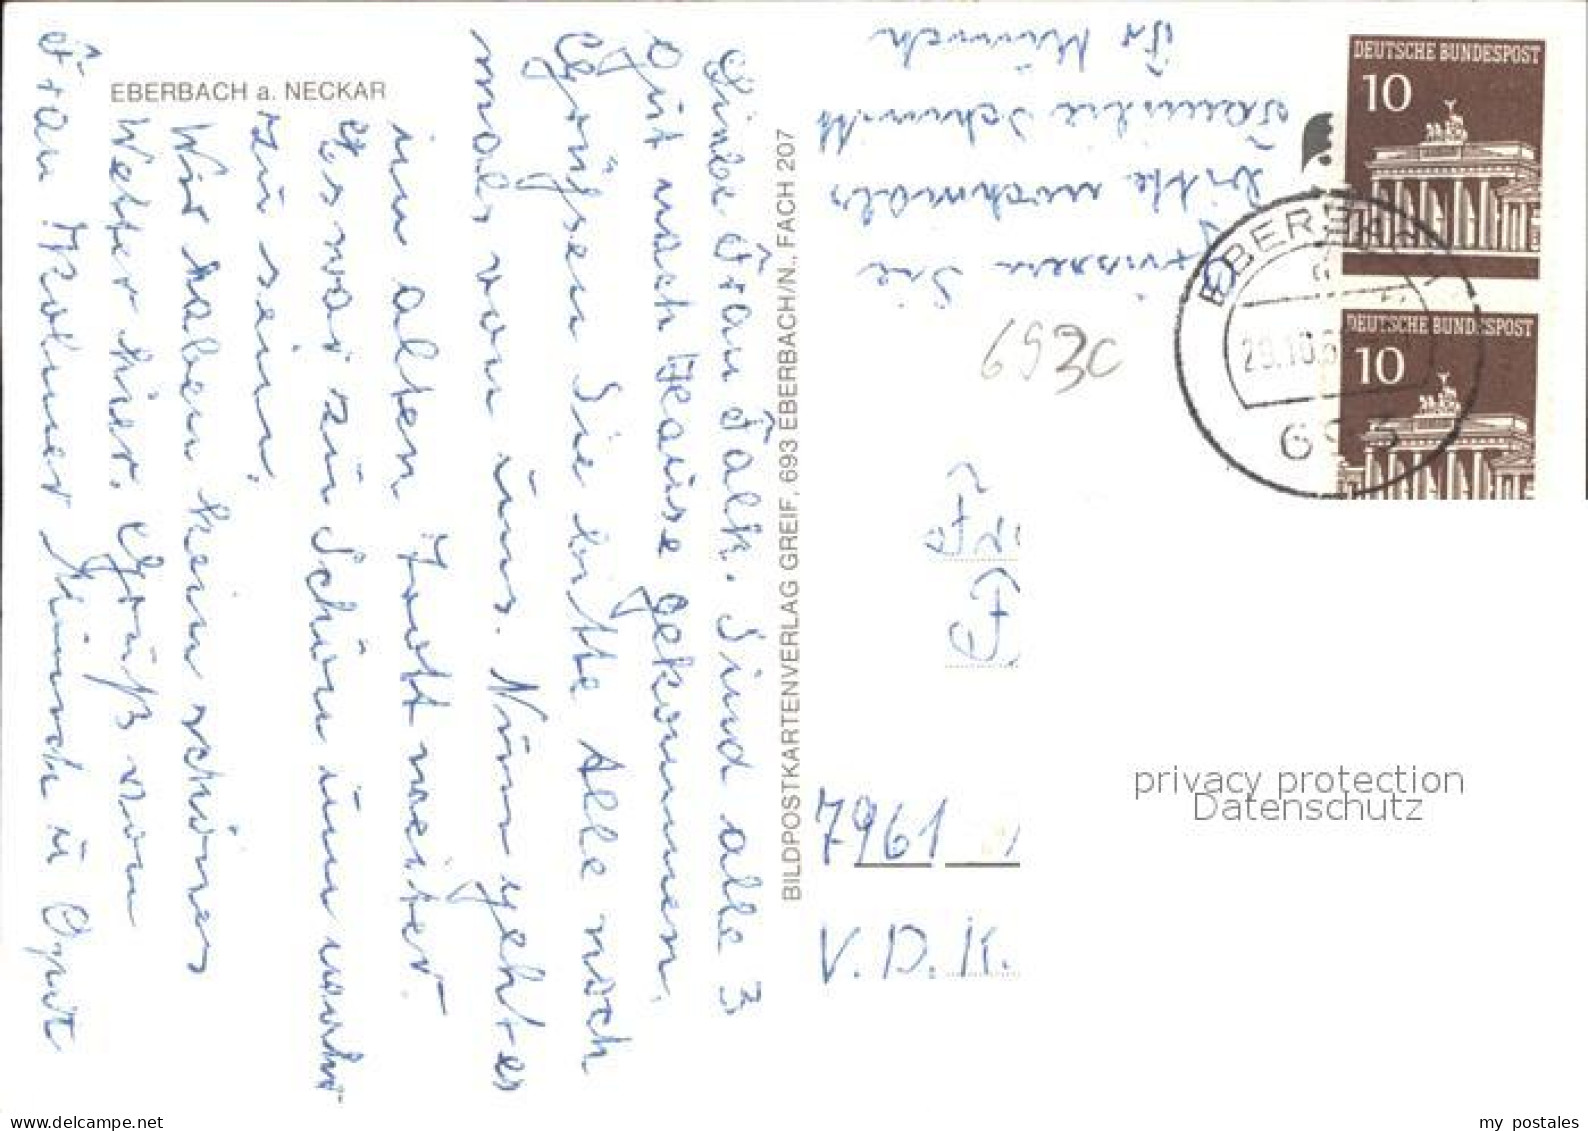 EBERBACH a. NECKAR
Liebe Frau Falk. Sind alle 3
gut nach Hause gekommen.
Grüßen Sie bitte Alle noch
mals von uns. Nun geht es
im alten Trott weiter.
Es war zu Schön um wahr
zu sein.
Wir haben kein schönes
Wetter hier. Gruß von
Frau Münch u Opa
BILDPOSTKARTENVERLAG GREIF, 693 EBERBACH/N., FACH 207
Grüssen Sie
bitte nochmals
Familie Schmitt
Fr Münch
DEUTSCHE BUNDESPOST
10
DEUTSCHE BUNDESPOST
10
EBERBACH
29.10.6
693
693c
7961
V.D.K.
privacy protection
Datenschutz
www.delcampe.net
my_postales